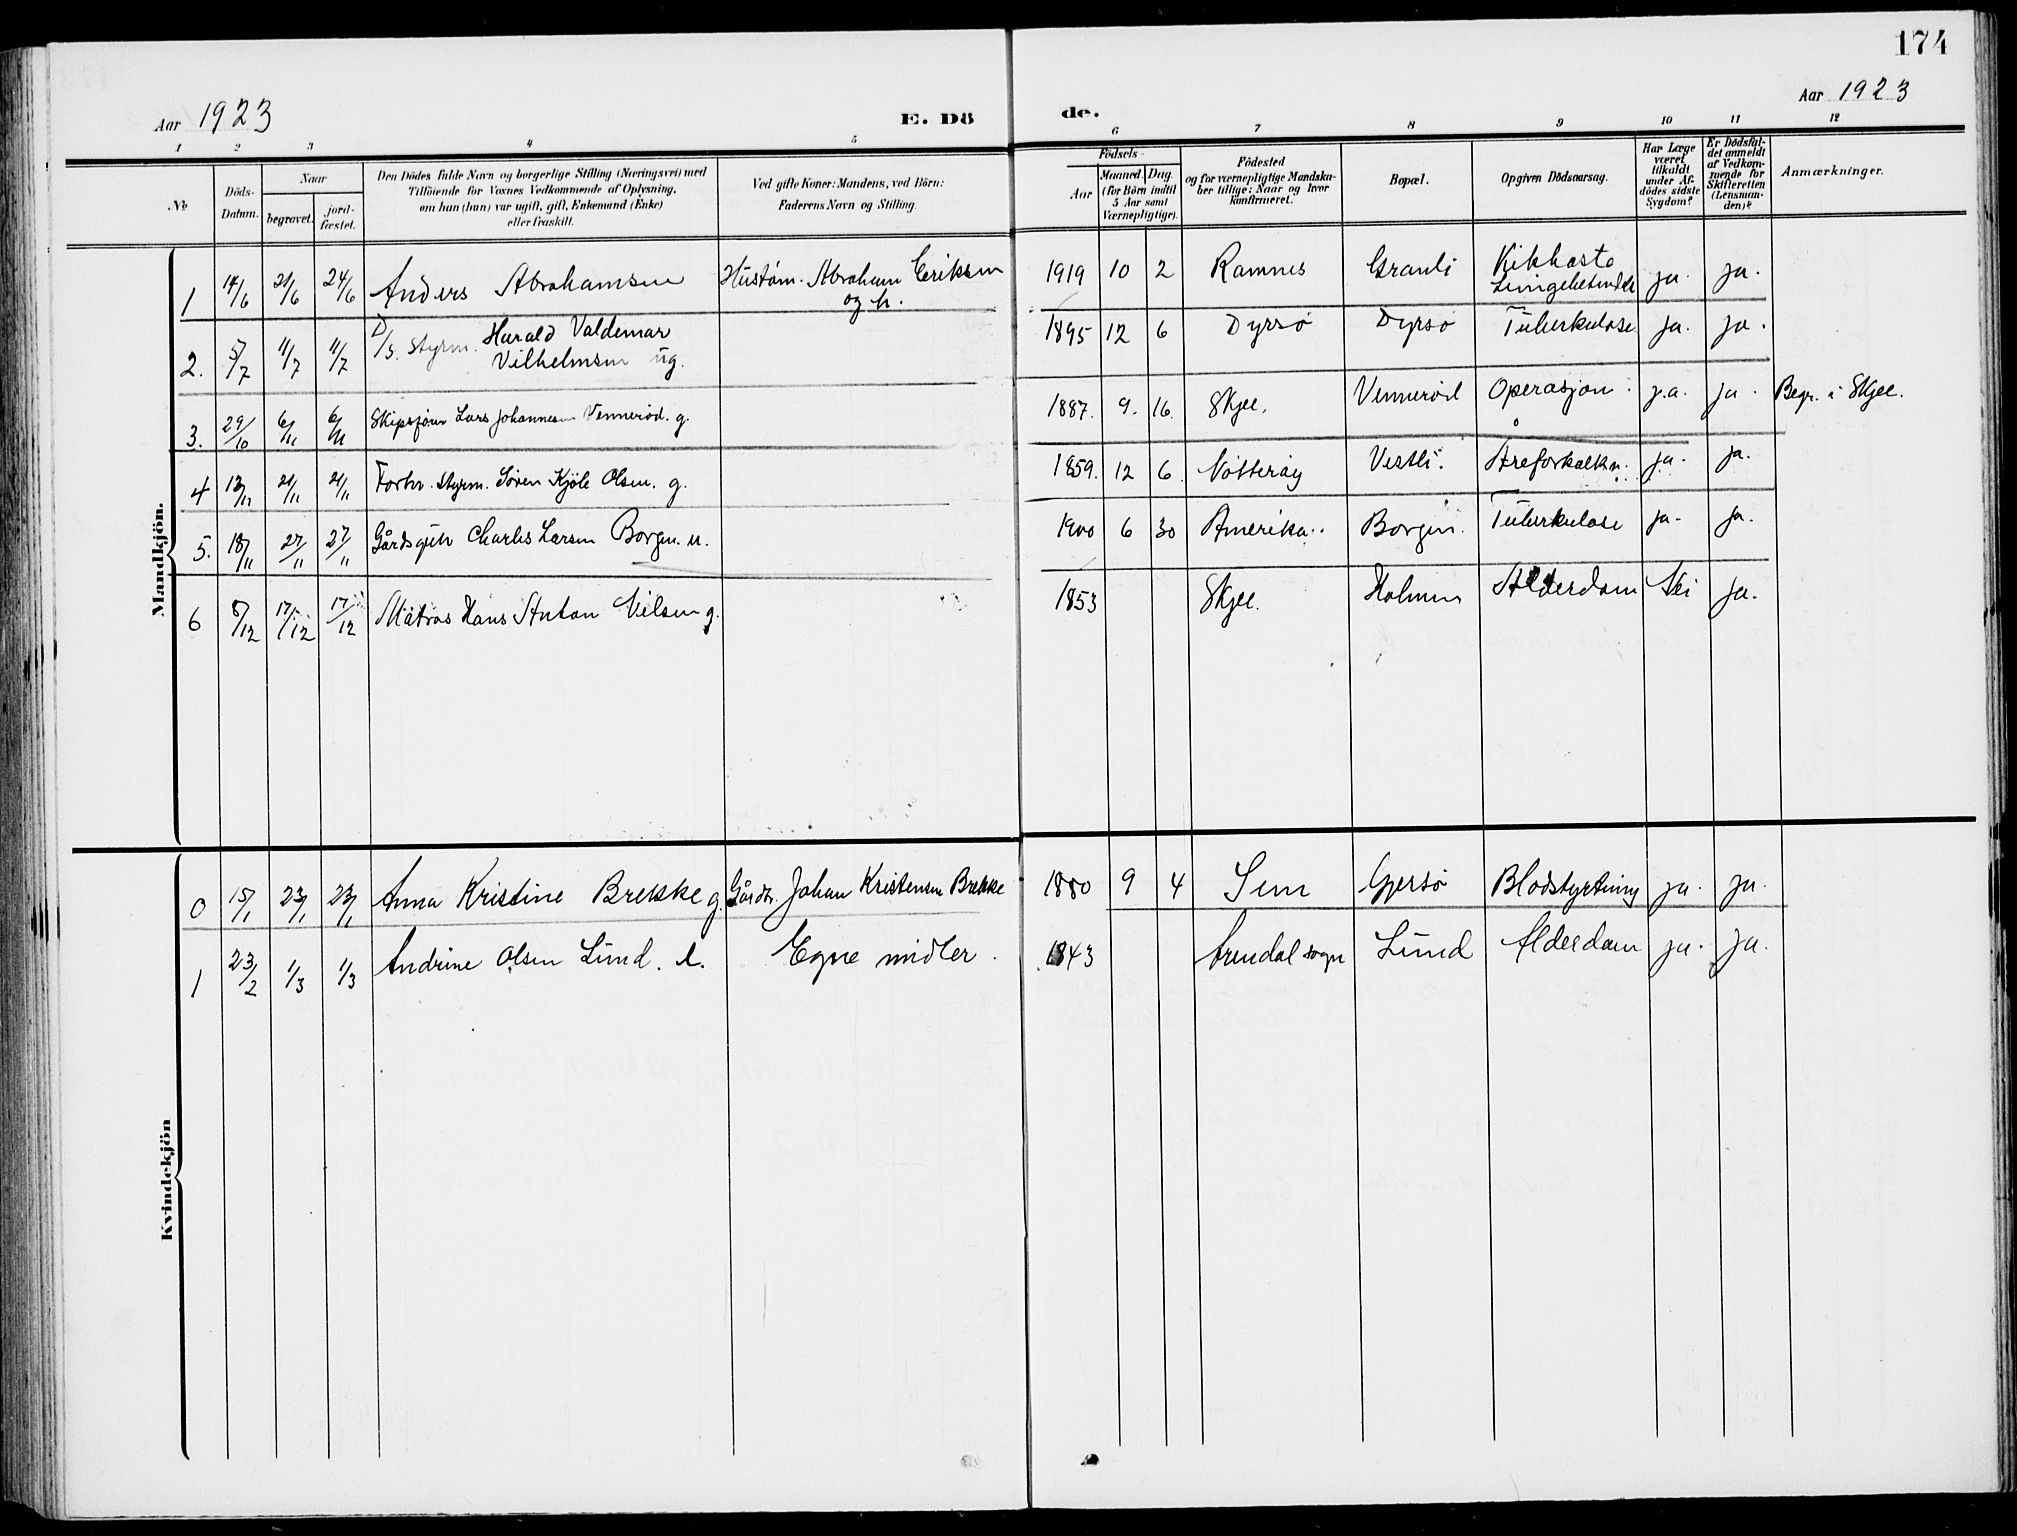 174
Aar 1923
E. Dö
de.
Aar 1923
1 2 3 4 5 6 7 8 9 10 11 12
№
Döds-
Datum.
Naar
begravet.
jord-
fæstet.
Den Dödes fulde Navn og borgerlige Stilling (Næringsvei) med
Tilföiende for Voxnes Vedkommende af Oplysning,
om han (hun) var ugift, gift, Enkemand (Enke)
eller fraskilt.
Ved gifte Koner: Mandens, ved Börn:
Faderens Navn og Stilling.
Födsels-
Aar
Maaned. Dag.
(for Börn indtil
5 Aar samt
Værnepligtige).
Födested
og for værnepligtige Mandska-
ber tillige: Naar og hvor
konfirmeret.
Bopæl.
Opgiven Dödsaarsag.
Har Læge
været
tilkaldt
under Af-
dödes sidste
Sygdom?
Er Dödsfal-
det anmeldt
af Vedkom-
mende for
Skifteretten
(Lensman-
den)?
Anmærkninger.
Mandkjön.
1 14/6 21/6 24/6 Anders Abrahamsen Hustøm. Abraham Eriksen og h. 1919 10 2 Ramnes Granli Kikhoste Lungebetendelse ja. ja.
2. 5/7 11/7 11/7 D/S. Styrm. Harald Valdemar
Vilhelmsen ug. 1895 12 6 Dyrsø Dyrsø Tuberkulose ja. ja.
3. 29/10 6/11 6/11 Skipsfører Lars Johannesen Vennerød. g. 1887. 9. 16. Skjee. Vennerød Operasjon. ja. ja. Begr. i Skjee.
4 13/11 21/11 21/11 Forhv. Styrm. Søren Kjøle Olsen. g. 1859. 12 6. Nøtterøy Vestli. Åreforkalkn. ja. ja.
5. 18/11 27/11 27/11 Gårdsgutt Charles Larsen Borgen. u. 1900 6 30 Amerika. Borgen. Tuberkulose ja. ja.
6 8/12 17/12 17/12 Matros Hans Anton Nilsen g. 1853 Skjee. Holmen Alderdom Nei ja.
Kvindekjön
0 15/1 23/1 23/1 Anna Kristine Brekke g. Gårdbr. Johan Kristensen Brekke 1880 9 4 Sem Gjersø Blodstyrtning ja. ja.
1 23/2 1/3 1/3 Andrine Olsen Lund. e. Egne midler. 1843 Arendal sogn Lund Alderdom ja. ja.